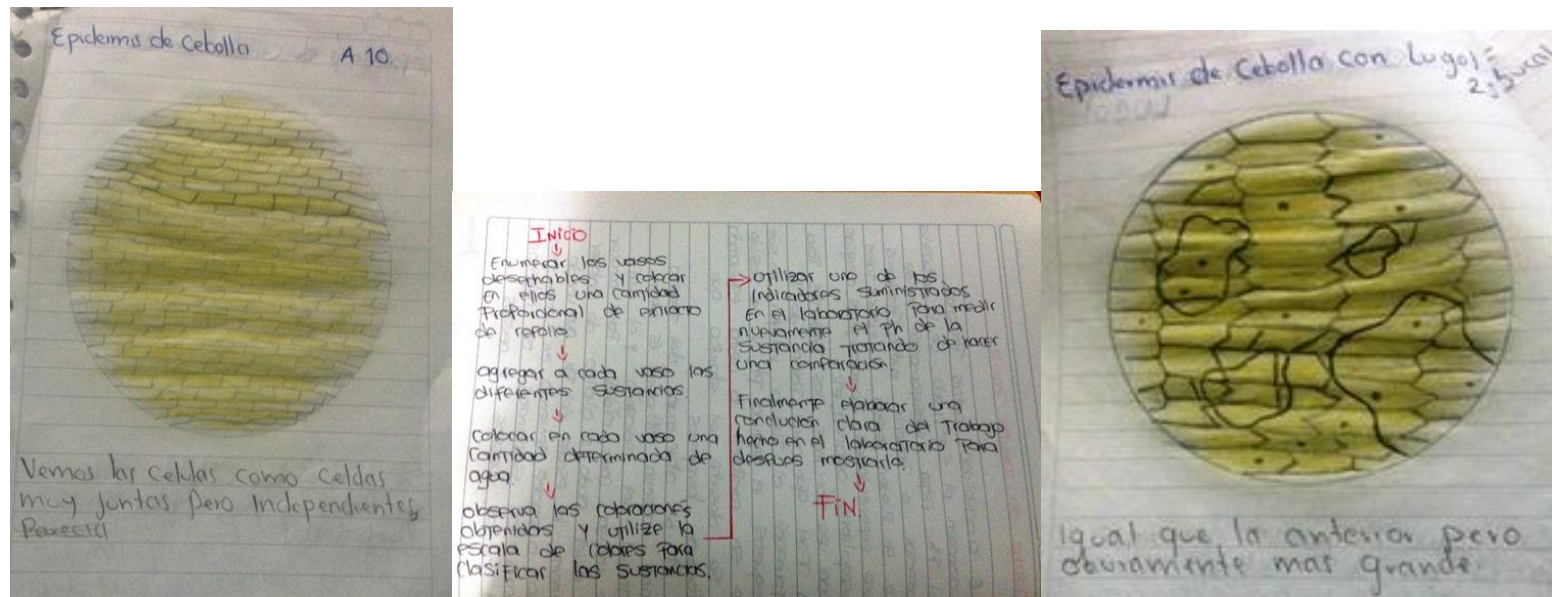 Epidermis de Cebolla
A 10.
Vemos las Celulas como Celdas
muy juntas Pero Independientes,
INICIO
Enumerar los vasos
desechables y colocar
en ellos una cantidad
Proporcional de extracto
de repollo
agregar a cada vaso las
diferentes sustancias
colocar en cada vaso una
cantidad determinada de
agua.
observa las coloraciones
obtenidas y utilize la
escala de colores Para
Clasificar las sustancias.
utilizar uno de los
Indicadores suministrados
En el laboratorio Para medir
nuevamente el Ph de la
sustancia tratando de hacer
una comparación.
Finalmente elaborar una
conclución clara del Trabajo
hecho en el laboratorio Para
despues mostrarla
FIN.
Epidermis de Cebolla con Lugol
igual que la anterior pero
obviamente mas grande.